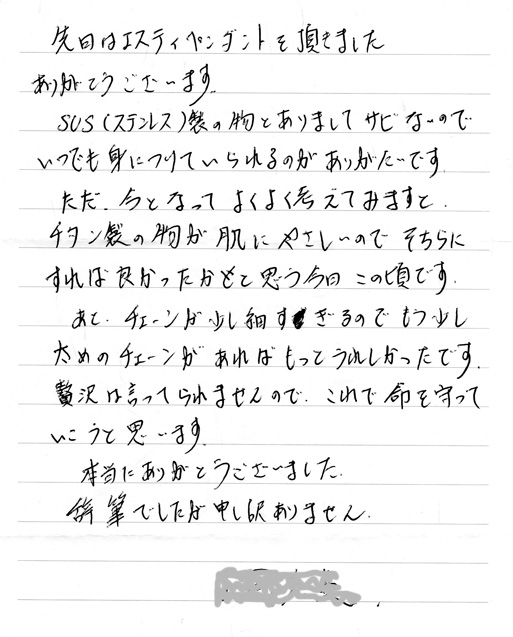 先日はエスティペンダントを頂きました
ありがとうございます。
SUS(ステンレス)製の物とありましてサビないので
いつでも身につけていられるのがありがたいです。
ただ、今となってよくよく考えてみますと、
チタン製の物が肌にやさしいのでそちらに
すれば良かったかもと思う今日この頃です。
あと、チェーンが少し細すぎるのでもう少し
太めのチェーンがあればもっとうれしかったです。
贅沢は言ってられませんので、これで命を守って
いこうと思います。
本当にありがとうございました。
乱筆でしたが申し訳ありません。